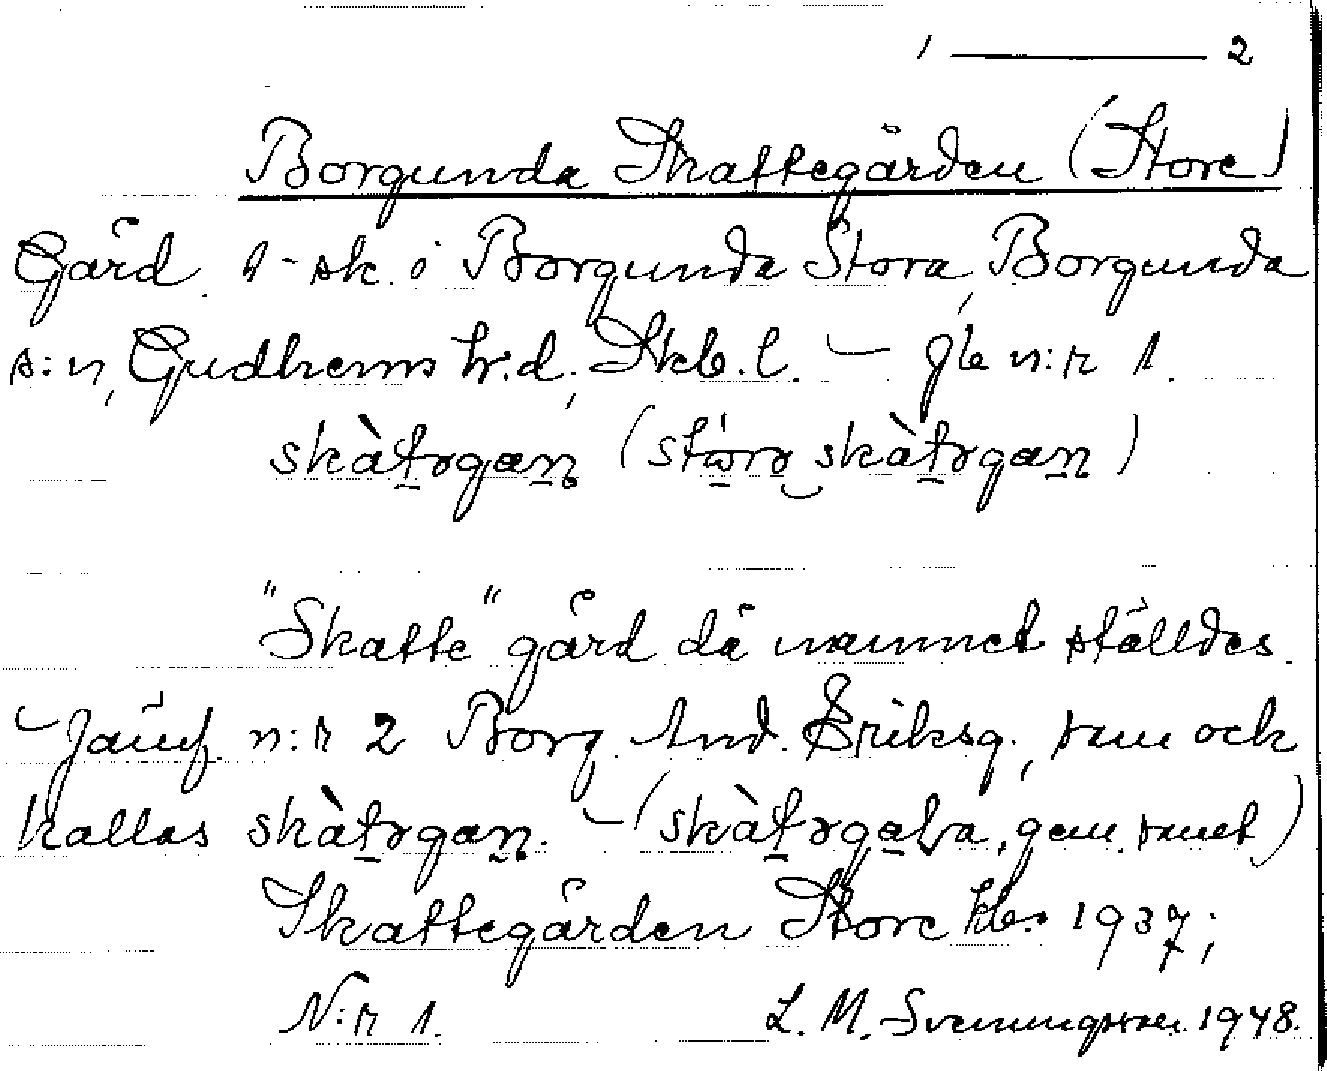 1 ——— 2
Borgunda Skattegården (Store)
Gård. 1-sk. i Borgunda Stora, Borgunda
s:n, Gudhems h:d, Skb. l. – Jb n:r 1.
skàtɤgaṉ (stɷ̄rɤ skàtɤgaṉ)
"Skatte" gård då namnet ställdes.
– Jämf. n:r 2 Borg. And. Eriksg., som ock
kallas skàtɤgaṉ. – (skàtɤgaɫra, gem. namet)
Skattegården Store kb. 1937;
N:r 1. L. M. Svenungsson 1948.